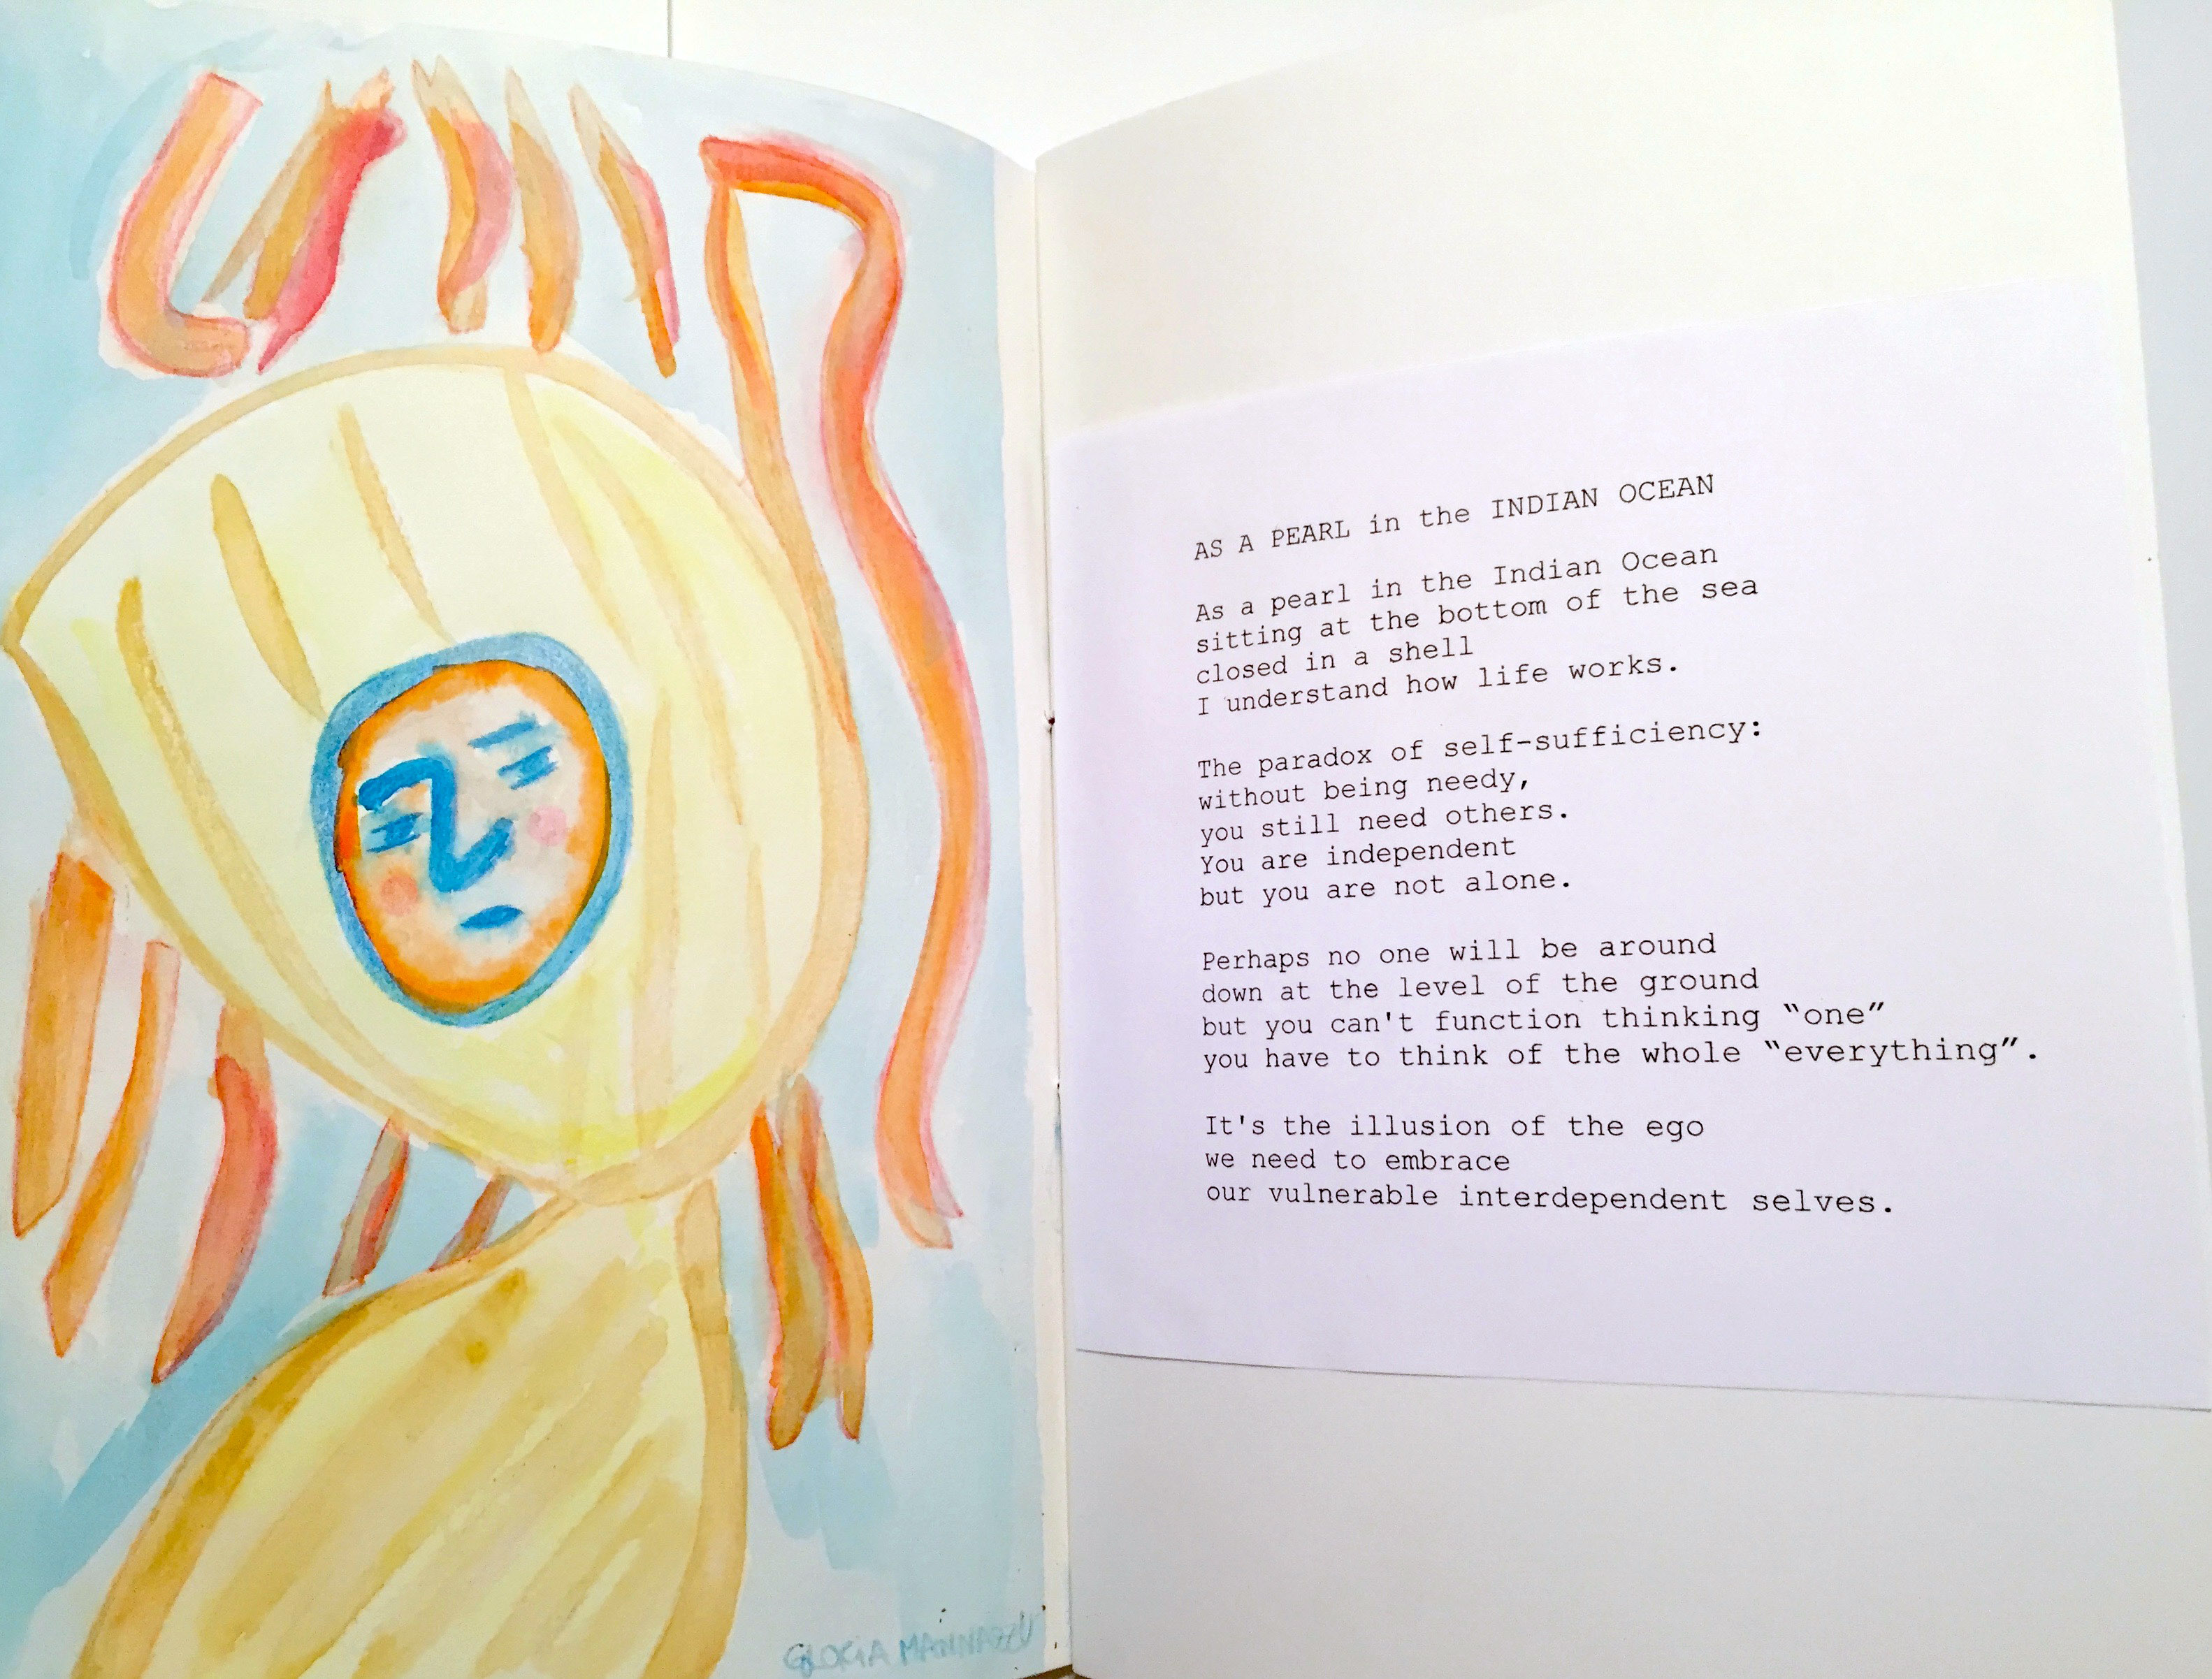 AS A PEARL in the INDIAN OCEAN
As a pearl in the Indian Ocean
sitting at the bottom of the sea
closed in a shell
I understand how life works.
The paradox of self-sufficiency:
without being needy,
you still need others.
You are independent
but you are not alone.
Perhaps no one will be around
down at the level of the ground
but you can't function thinking “one”
you have to think of the whole “everything”.
It's the illusion of the ego
we need to embrace
our vulnerable interdependent selves.
GLORIA